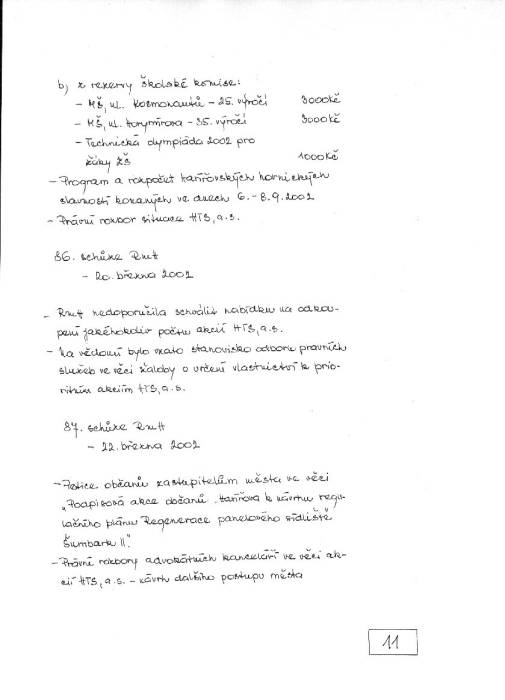 b) z rezervy školské komise:
- MŠ, ul. Kosmonautů - 25. výročí 3000Kč
- MŠ, ul. Horymírova - 35. výročí 3000Kč
- Technická olympiáda 2002 pro
žáky ZŠ 1000Kč
- Program a rozpočet Havířovských hornických
slavností konaných ve dnech 6. - 8.9.2002
- Právní rozbor situace HTS, a.s.
86. schůze RmH
- 20. března 2002
- RmH nedoporučila schválit nabídku na odkou-
pení jakéhokoliv počtu akcií HTS, a.s.
- Na vědomí bylo vzato stanovisko odboru právních
služeb ve věci žaloby o určení vlastnictví k prio-
ritním akciím HTS, a.s.
87. schůze RmH
- 22. března 2002
- Petice občanů zastupitelům města ve věci
"Podpisová akce občanů Havířova k návrhu regu-
lačního plánu Regenerace panelového sídliště
Šumbark II."
- Právní rozbory advokátních kanceláří ve věci ak-
cií HTS, a.s. - návrh dalšího postupu města
11